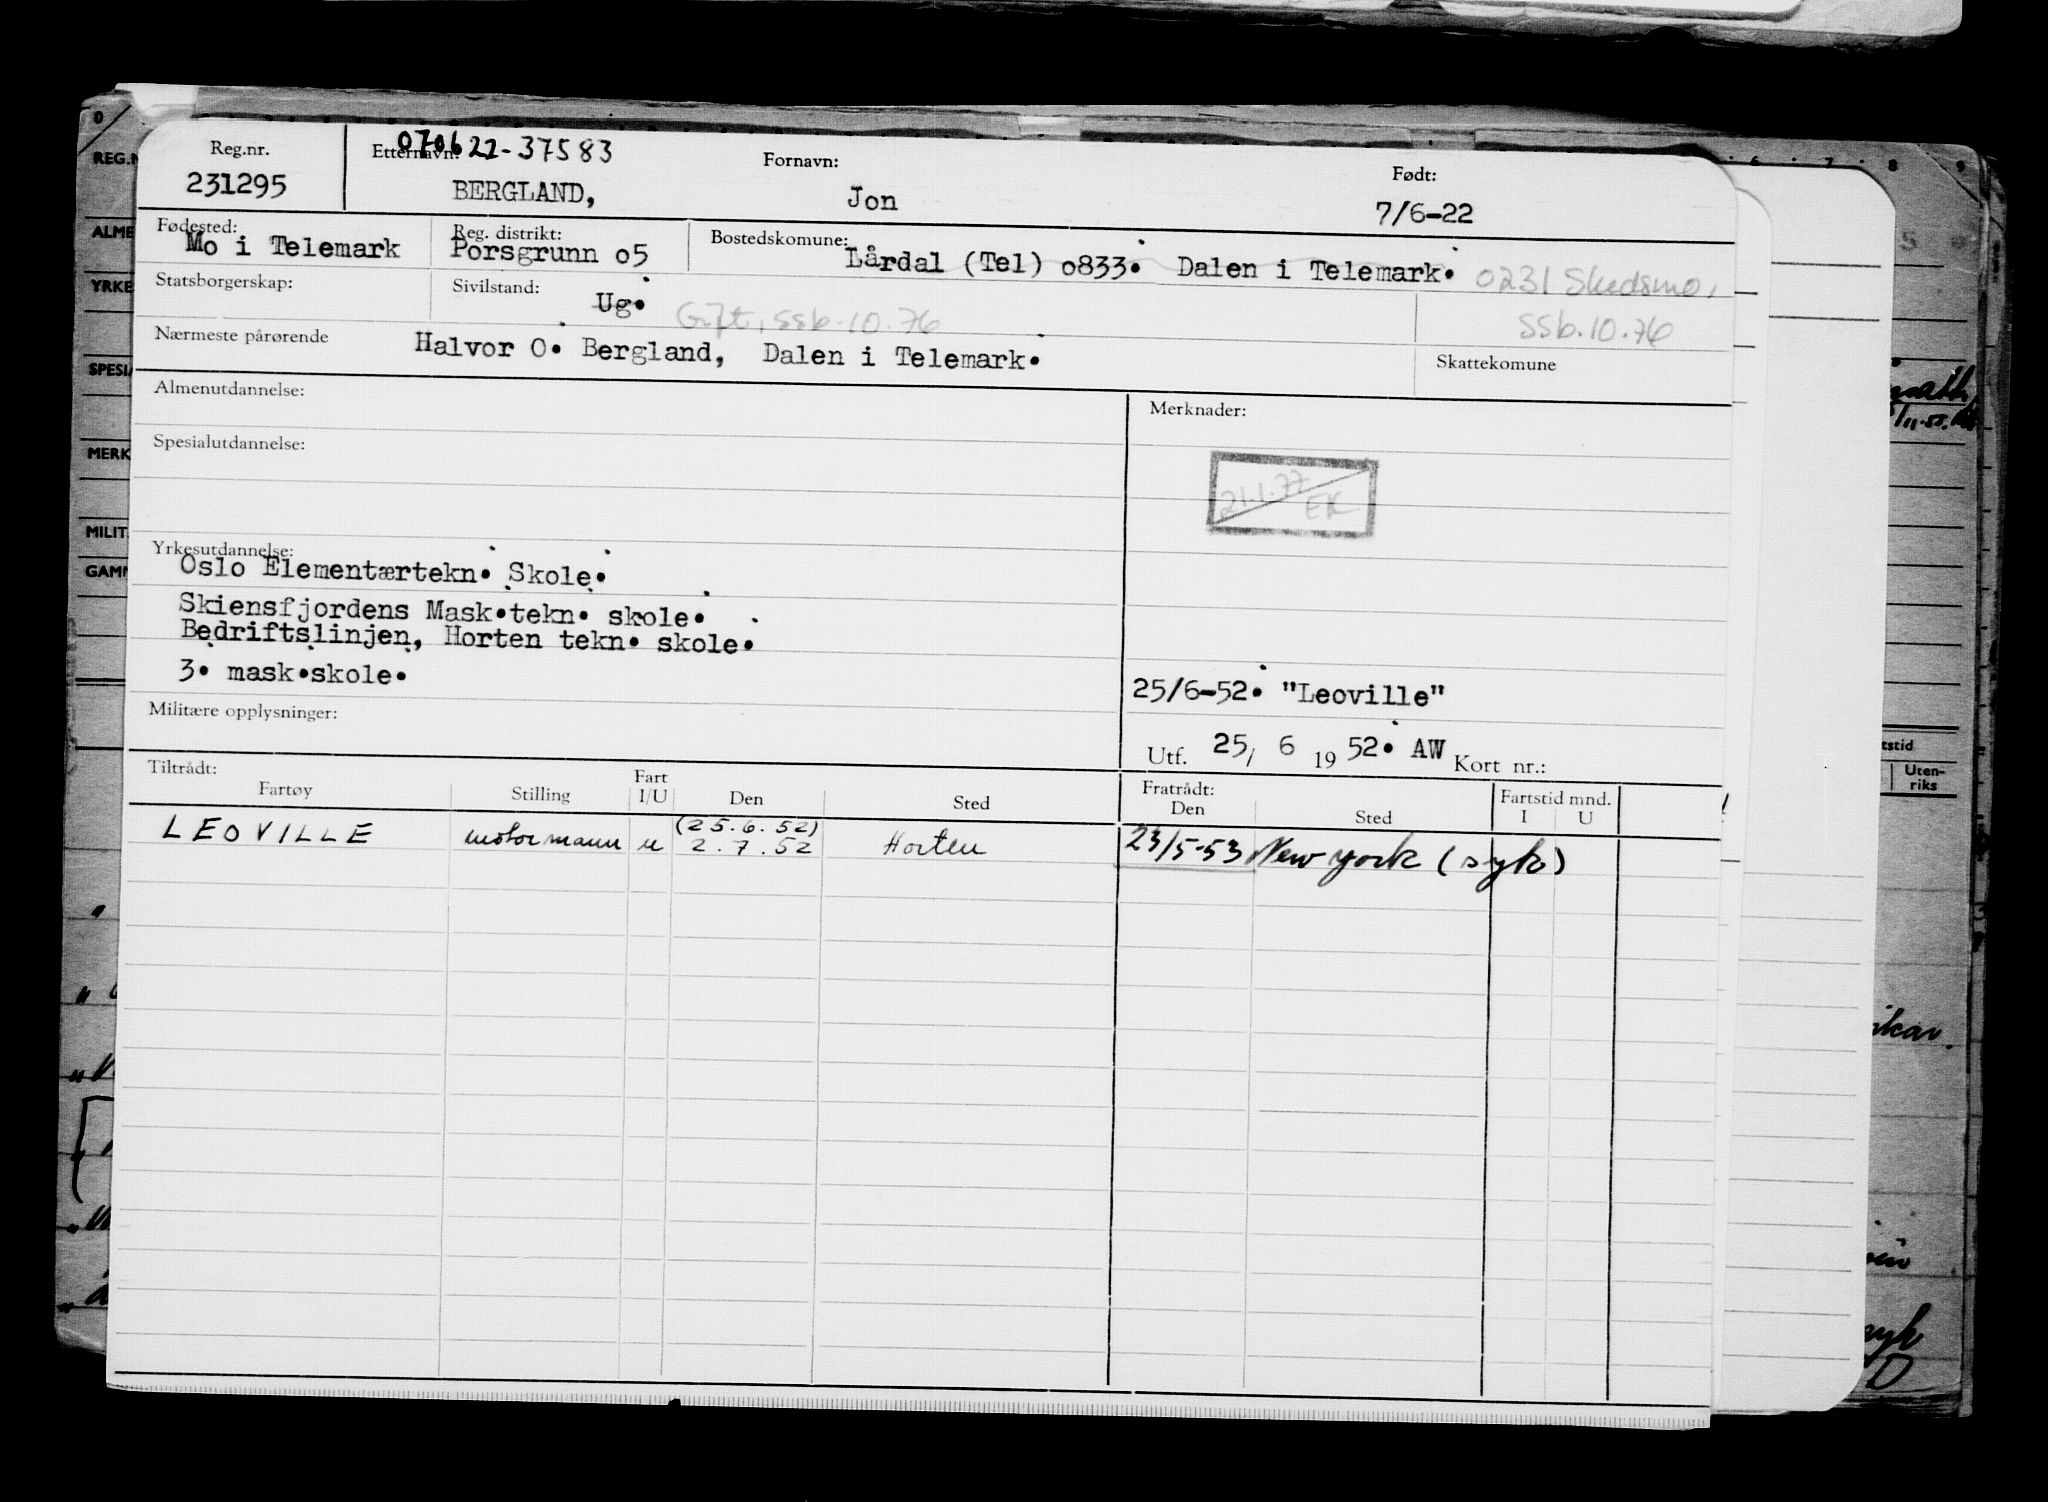 Reg.nr. Etternavn: 070622-37583 Fornavn: Født:
231295 BERGLAND, Jon 7/6-22
Fødested: Reg. distrikt: Bostedskomune:
Mo i Telemark Porsgrunn o5 Lårdal (Tel) o833. Dalen i Telemark. 0231 Skedsmo,
Statsborgerskap: Sivilstand: Ug. Gift, ssb.10.76 ssb.10.76
Nærmeste pårørende Halvor O. Bergland, Dalen i Telemark. Skattekomune
Almenutdannelse: Merknader:
Spesialutdannelse:
21.1.77 EK
Yrkesutdannelse:
Oslo Elementærtekn. Skole.
Skiensfjordens Mask.tekn. skole.
Bedriftslinjen, Horten tekn. skole.
3. mask.skole.
25/6-52. "Leoville"
Militære opplysninger:
Utf. 25/ 6 19 52. AW Kort nr.:
Tiltrådt: Fratrådt:
Fartøy Stilling Fart I/U Den Sted Den Sted Fartstid mnd. I U
LEOVILLE motormann u (25.6.52) 2.7.52 Horten 23/5-53 New york (syk)
REG.N
ALME
YRKE
SPESIA
MERK
MILIT.
GAMN
tstid
Uten-
riks